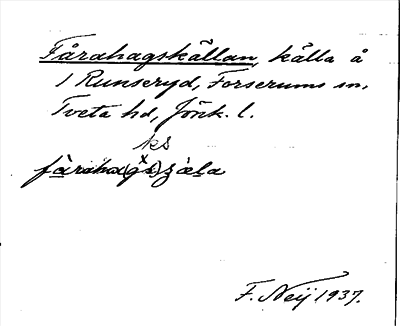 Fårahagskällan, källa å
1 Runseryd, Forserums sn,
Tveta hd, Jönk. l.
ks
fåraha(gs)
F. Neij 1937.